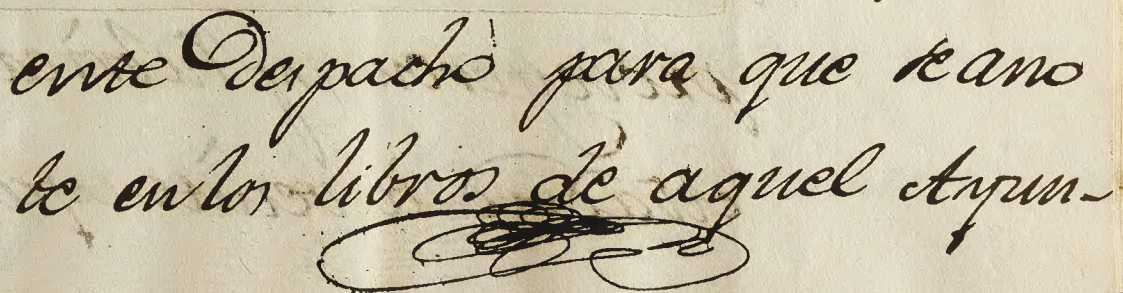 ente Despacho para que se ano
te en los libros de aquel Ayun-